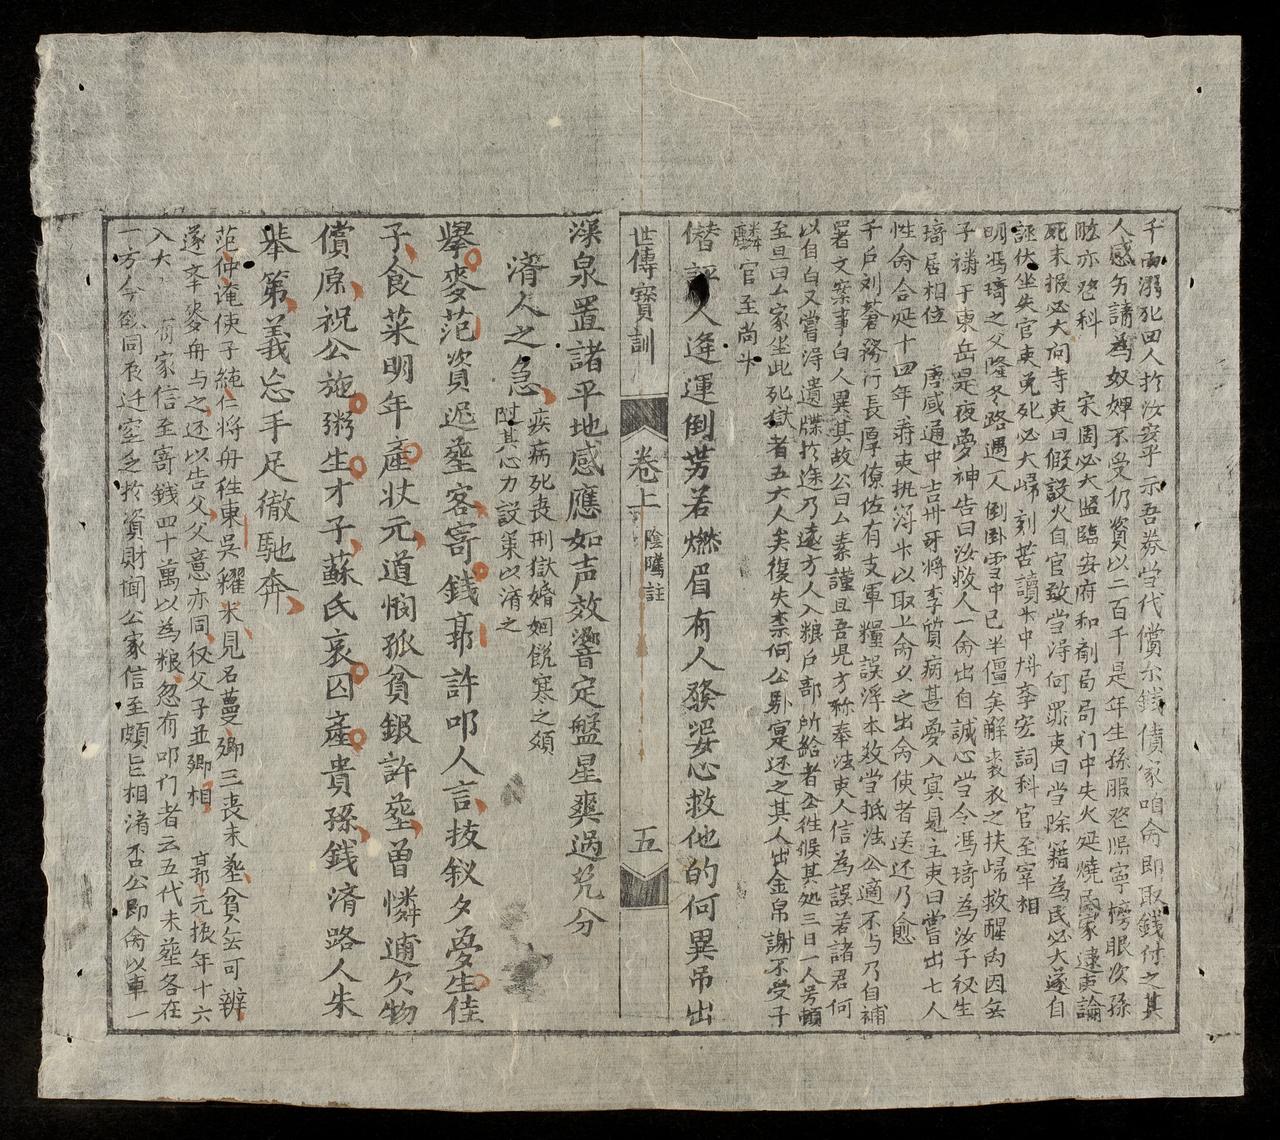 千兩溺死四人於汝安乎示吾券当代償尔錢債家咱命即取錢付之其
人感勿請為奴婢不受仍資以二百千是年生孫服登熙寧榜眼次孫
肱亦登科　宋周必大監臨安府和剤局局门中失火延燒民家逮吏論
死未报必大问寺吏曰假設火自官致当得何罪吏曰当除籍為民必大遂自
誣伏坐失官吏免死必大歸刻苦讀书中博李宏詞科官至宰相
明馮琦之父隆冬路遇一人倒卧雪中已半僵矣解裘衣之扶歸救醒内因無
子禱于東岳是夜夢神告曰汝救人一命出自誠心当令馮琦為汝子伩生
琦居相位　唐咸通中吉州牙將李質病甚夢入冥見主吏曰嘗出七人
性命合延十四年寿吏执簿书以取上命乂之出命使者送还乃愈
千戶刘蒼務行長厚僚佐有支軍糧誤浮本数当抵法公適不与乃自補
署文案事白人異其故公曰厶素謹且吾児方称奉法吏人信為誤若諸君何
以自白又嘗得遺牒於途乃遠方人入粮戶部所給者公徃候其処三日一人号頓
至旦曰厶家坐此死獄者五六人矣復失柰何公卧寔还之其人出金帛謝不受子
麟官至尚书
僣評人逄運倒劳若燃眉有人發婆心救他的何異吊出
世傳寶訓　卷上　陰騭註　五
深泉置諸平地感應如声效響定盤星爽過兊分
濟人之急　疾病死丧刑獄婚姻飢寒之頻
附其心力設策以濟之
擧麥范資迟塟客寄錢郭許叩人言技釵夕夢生佳
子食菜明年產状元道悯孤貧銀許塟曽憐逋欠物
償原祝公施粥生才子蘇氏哀囚產貴孫錢濟路人朱
牽第義忘手足徹馳奔
范仲淹使子純仁将舟徃東吳糴米見石蔓卿三丧未塟貧無可辦
遂挙麥舟与之还以告父父意亦同伩父子並卿相　郭元振年十六
入大　有家信至寄錢四十萬以為粮忽有叩门者云五代未塟各在
一方今欲同辰迁窆乏於資財闻公家信至頗㠯相濟否公即命以車一